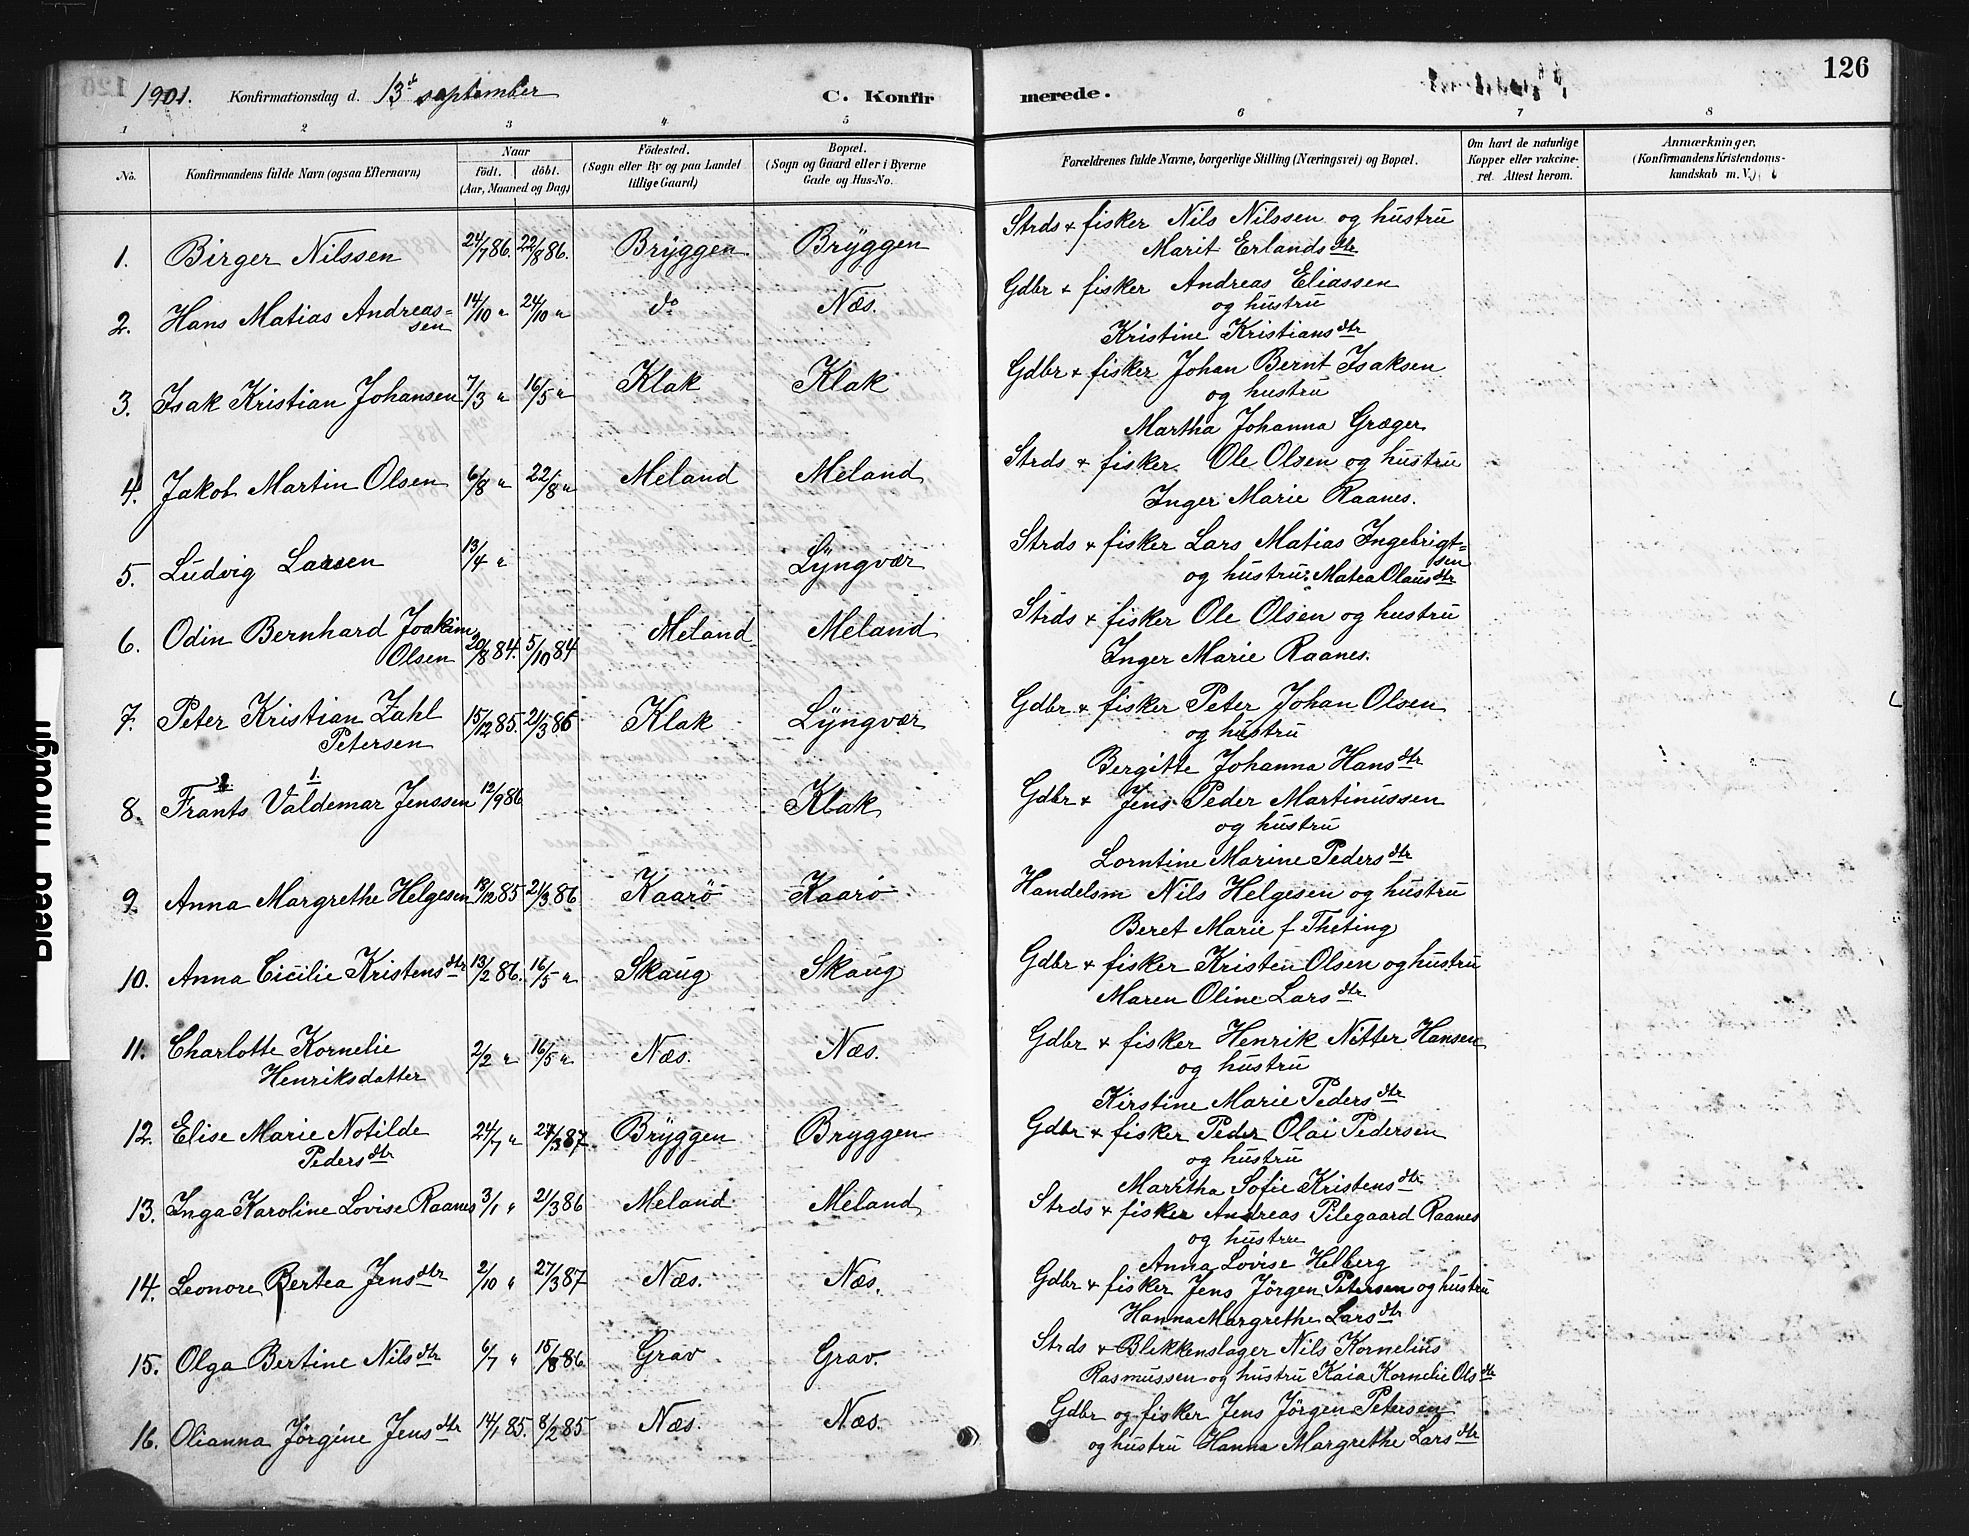 126
1901. Konfirmationsdag d. 13de september C. Konfirmerede.
1 2 3 4 5 6 7 8
No. Konfirmandens fulde Navn (ogsaa Efternavn) Naar født. døbt. (Aar, Maaned og Dag) Fødested. (Sogn eller By og paa Landet tillige Gaard) Bopæl. (Sogn og Gaard eller i Byerne Gade og Hus-No. Forældrenes fulde Navne, borgerlige Stilling (Næringsvei) og Bopæl. Om havt de naturlige Kopper eller vakcineret. Attest herom. Anmærkninger. (Konfirmandens Kristendomskundskab m. V.)
1. Birger Nilssen 24/7 86. 22/8 86. Bryggen Bryggen Strds + fisker Nils Nilssen og hustru
Marit Erlandsdtr
2. Hans Matias Andreas= 14/10 " 24/10 " do Næs. Gdbr + fisker Andreas Eliassen
sen og hustru
Kristine Kristiansdtr
3. Isak Kristian Johansen 7/3 " 16/5 " Klak Klak Gdbr + fisker Johan Bernt Isaksen
og hustru
Martha Johanna Græger
4. Jakob Martin Olsen 6/8 " 22/8 " Meland Meland Strds + fisker Ole Olsen og hustru
Inger Marie Raanes.
5. Ludvig Larsen 13/4 " Lyngvær Strds + fisker Lars Matias Ingebrigt=
sen
og hustru Matea Olausdtr
6. Odin Bernhard Joakim 20/8 84. 5/10 84 Meland Meland Strds + fisker Ole Olsen og hustru
Olsen Inger Marie Raanes.
7. Peter Kristian Zahl 15/12 85. 21/3 86 Klak Lyngvær Gdbr + fisker Peter Johan Olsen
Petersen og hustru
Bergitte Johanna Hansdtr
8. Frants Valdemar Jenssen 12/9 86 Klak Gdbr + Jens Peder Martinussen
og hustru
Lorntine Marine Pedersdtr
9. Anna Margrethe Helgesen 18/12 85 21/3 86 Kaarø Kaarø Handelsm Nils Helgesen og hustru
Beret Marie f Theting
10. Anna Cicilie Kristensdtr 13/2 86. 16/5 " Skaug Skaug Gdbr + fisker Kristen Olsen og hustru
Maren Oline Larsdtr
11. Charlotte Kornelie 2/2 " 16/5 " Næs. Næs. Gdbr + fisker Henrik Nitter Hansen
Henriksdatter og hustru
Kirstine Marie Pedersdtr
12. Elise Marie Notilde 24/7 " 27/3 87. Bryggen Bryggen Gdbr + fisker Peder Olai Pedersen
Pedersdtr og hustru
Marrtha Sofie Kristensdtr
13. Inga Karoline Lovise Raanes 3/1 " 21/3 86 Meland Meland Strds + fisker Andreas Pilegaard Raanes
og hustru
Anna Lovise Helberg
14. Leonore Bertea Jensdtr 2/10 " 27/3 87 Næs. Næs. Gdbr + fisker Jens Jørgen Petersen og hustru
Hanna Margrethe Larsdtr
15. Olga Bertine Nilsdtr 6/7 " 15/8 86 Grav Grav. Strds + Blikkenslager Nils Kornelius
Rasmussen og hustru Kaia Kornelie Olsdtr
16. Olianna Jørgine Jensdtr 14/1 85. 8/2 85 Næs. Næs. Gdbr og fisker Jens Jørgen Petersen
og hustru Hanna Margrethe Larsdtr